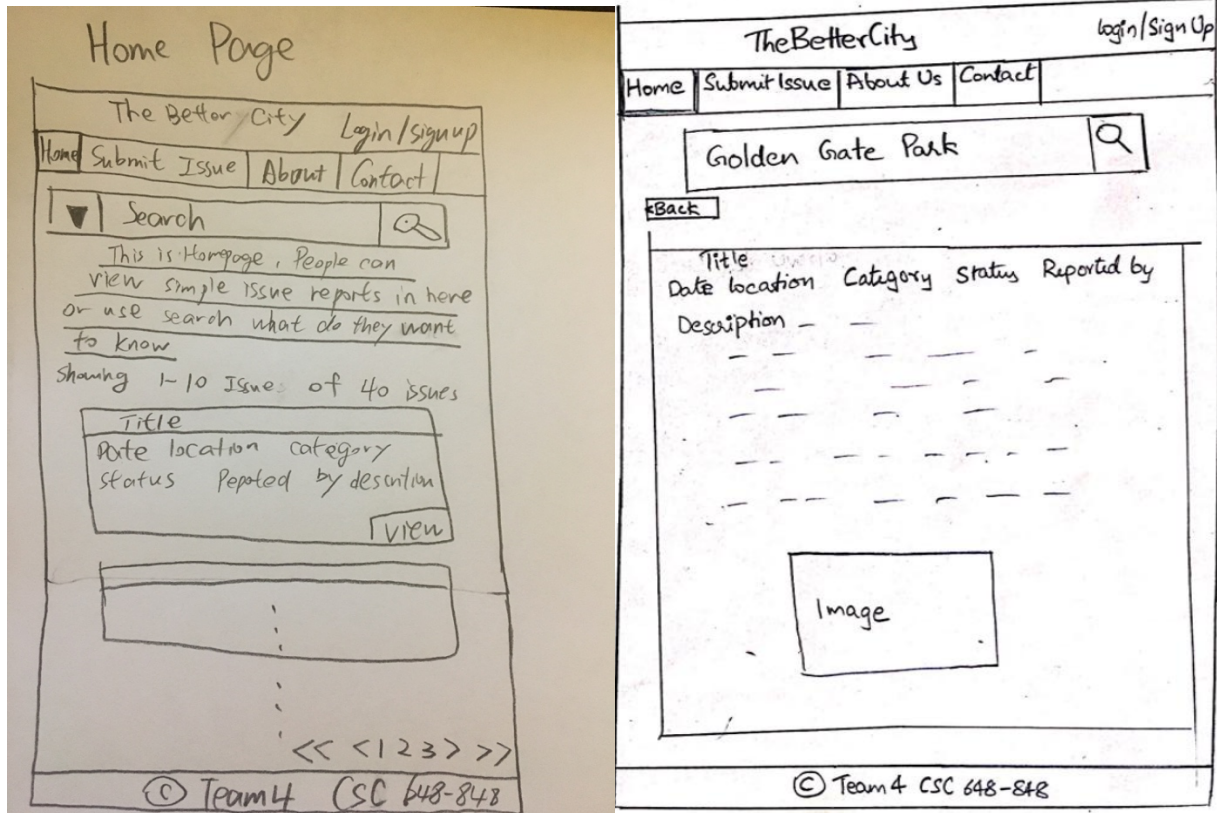 Home Page
The Better City
Login/signup
Home Submit Issue About Contact
Search
This is Homepage, People can
view simple issue reports in here
or use search what do they want
to know
Showing 1-10 Issue of 40 issues
Title
Date location category
status Pepoted by descrition
View
<< <1 2 3> >>
© Team4 CSC 648-848
TheBetterCity
Login/Sign Up
Home Submit Issue About Us Contact
Golden Gate Park
<Back
Title
Date location Category Status Reported by
Description
Image
© Team4 CSC 648-848